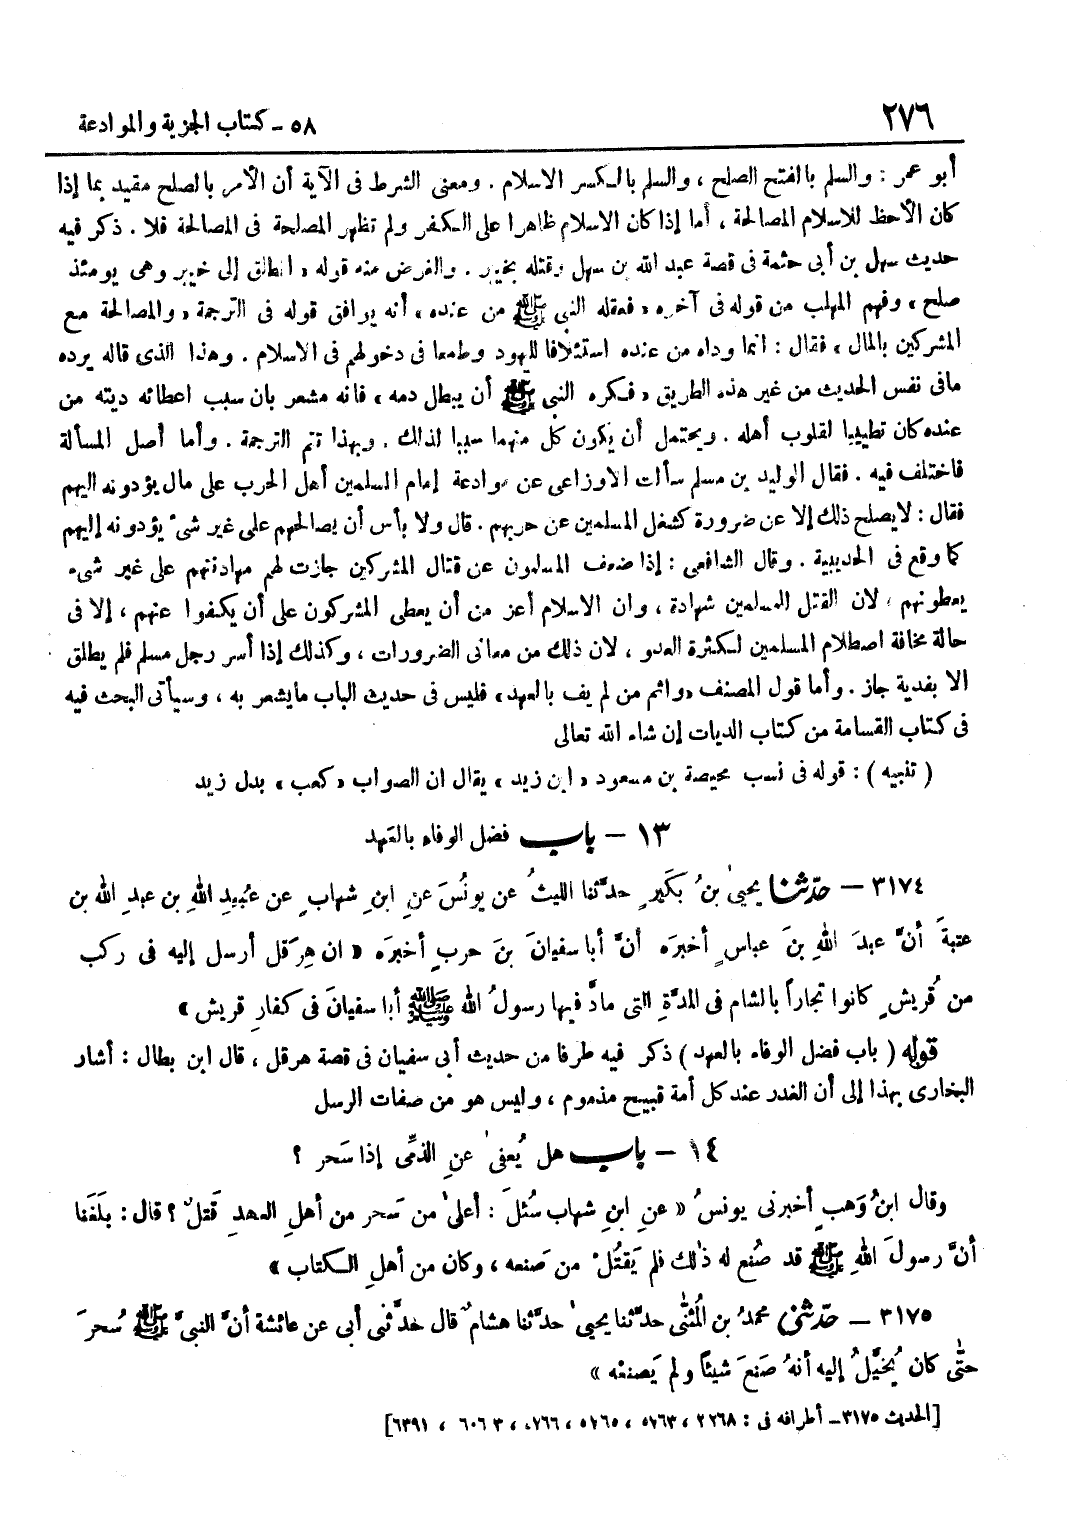 ٢٧٦
٥٨ - كتاب الجزية والموادعة
أبو عمر : والسلم بالفتح الصلح ، والسلم بالكسر الاسلام . ومعنى الشرط فى الآية أن الأمر بالصلح مقيد بما إذا
كان الأحظ للاسلام المصالحة ، أما إذا كان الاسلام ظاهرا على الكفر ولم تظهر المصلحة فى المصالحة فلا . ذكر فيه
حديث سهل بن أبى حثمة فى قصة عبد الله بن سهل وقتله بخيبر . والغرض منه قوله « انطلق إلى خيبر وهى يومئذ
صلح » وفهم المهلب من قوله فى آخره « فعقله النبى ﷺ من عنده » أنه يوافق قوله فى الترجمة « والمصالحة مع
المشركين بالمال » فقال : انما وداه من عنده استئلافا لليهود وطمعا فى دخولهم فى الاسلام . وهذا الذى قاله يرده
مافى نفس الحديث من غير هذه الطريق « فكره النبى ﷺ أن يبطل دمه » فانه مشعر بان سبب اعطائه ديته من
عنده كان تطييبا لقلوب أهله . ويحتمل أن يكون كل منهما سببا لذلك . وبهذا تتم الترجمة . وأما أصل المسألة
فاختلف فيه . فقال الوليد بن مسلم سألت الاوزاعى عن موادعة إمام المسلمين أهل الحرب على مال يؤدونه اليهم
فقال : لايصلح ذلك إلا عن ضرورة كشغل المسلمين عن حربهم . قال ولا بأس أن يصالحهم على غير شىء يؤدونه إليهم
كما وقع فى الحديبية . وقال الشافعى : إذا ضعف المسلمون عن قتال المشركين جازت لهم مهادنتهم على غير شىء
يعطونهم ، لان القتل للمسلمين شهادة ، وان الاسلام أعز من أن يعطى المشركون على أن يكفوا عنهم ، إلا فى
حالة مخافة اصطلام المسلمين لكثرة العدو ، لان ذلك من معانى الضرورات ، وكذلك إذا أسر رجل مسلم فلم يطلق
الا بفدية جاز . وأما قول المصنف « واثم من لم يف بالعهد » فليس فى حديث الباب مايشعر به ، وسيأتى البحث فيه
فى كتاب القسامة من كتاب الديات إن شاء الله تعالى
( تنبيه ) : قوله فى نسب محيصة بن مسعود « ابن زيد » يقال ان الصواب « كعب » بدل زيد
١٣ – باب فضل الوفاء بالعهد
٣١٧٤ – حدّثنا يحيىٰ بنُ بكَيرٍ حدثَنا الليثُ عن يونُسَ عنِ ابنِ شهابٍ عن عبُيدِ اللهِ بن عبدِ الله بن
عتبةَ أنَّ عبدَ اللهِ بنَ عباسٍ أخبرَه أنَّ أبا سفيانَ بنَ حربٍ أخبرَه « ان هِرَقل أرسل إليه فى ركب
من قُريشٍ كانوا تجاراً بالشام فى المدَّةِ التى مادَّ فيها رسولُ الله ﷺ أبا سفيانَ فى كفارِ قريش »
قوله ( باب فضل الوفاء بالعهد ) ذكر فيه طرفا من حديث أبى سفيان فى قصة هرقل ، قال ابن بطال : أشار
البخارى بهذا إلى أن الغدر عند كل أمة قبيح مذموم ، وليس هو من صفات الرسل
١٤ – باب هل يُعفىٰ عنِ الذمِّى إذا سَحر ؟
وقال ابنُ وَهبٍ أخبرنى يونسُ « عنِ ابنِ شهاب سُئلَ : أعلىٰ من سَحر من أهلِ العهدِ قَتلٌ ؟ قال : بلَغَنا
أنَّ رسولَ اللهِ ﷺ قد صُنع له ذٰلك فلم يَقتُلْ من صَنعه ، وكان من أهلِ الكتاب »
٣١٧٥ – حدّثنى محمدُ بن المُثنّٰى حدثَّنا يحيىٰ حدثَّنا هشامٌ قال حدثَّنى أبى عن عائشة أنَّ النبىَّ ﷺ سُحرَ
حتّٰى كان يُخيَّلُ إليه أنهُ صَنعَ شيئاً ولم يَصنعْه »
[الحديث ٣١٧٥ – أطرافه فى : ٣٢٦٨ ، ٥٧٦٣ ، ٥٧٦٥ ، ٥٧٦٦ ، ٦٠٦٣ ، ٦٣٩١]